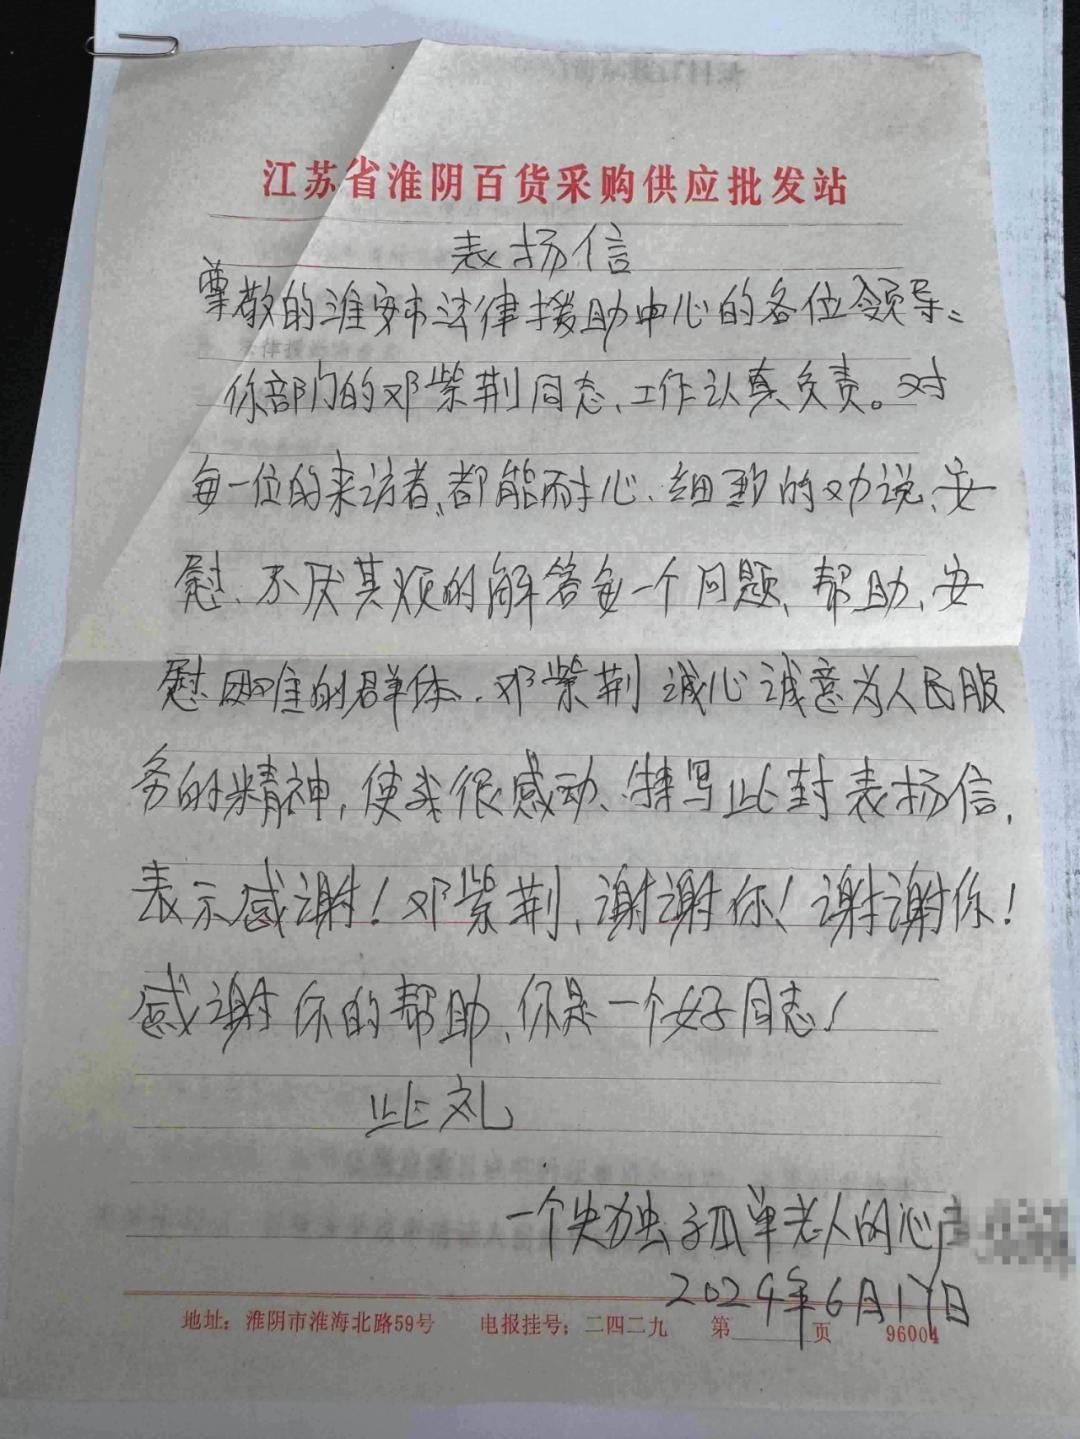 江苏省淮阴百货采购供应批发站
表扬信
尊敬的淮安市法律援助中心的各位领导：
你部门的邓紫荆同志、工作认真负责。对
每一位的来访者、都能耐心、细致的劝说、安
慰、不厌其烦的解答每一个问题、帮助、安
慰困难的群体、邓紫荆诚心诚意为人民服
务的精神，使我很感动、特写此封表扬信，
表示感谢！邓紫荆、谢谢你！谢谢你！
感谢你的帮助、你是一个好同志！
此礼
一个失独孤单老人的心声
2024年6月17日
地址：淮阴市淮海北路59号 电报挂号：二四二九 第 页 96004